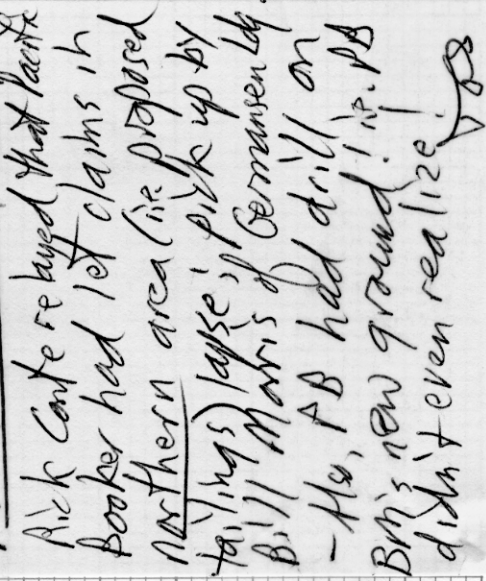 Rick Conte relayed that Pacific
Booker had let claims in
northern area (ie proposed
tailings) lapse; pick up by
Bill Morris of Germansen Ldg.
- Also, PB had drill on
BM's new ground! ie. PB
didn't even realize!